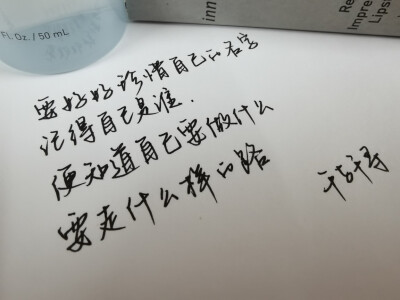 FL. Oz. / 50 mL
inn
Re
Impre
Lips
要好好珍惜自己的名字
记得自己是谁.
便知道自己要做什么
要走什么样的路